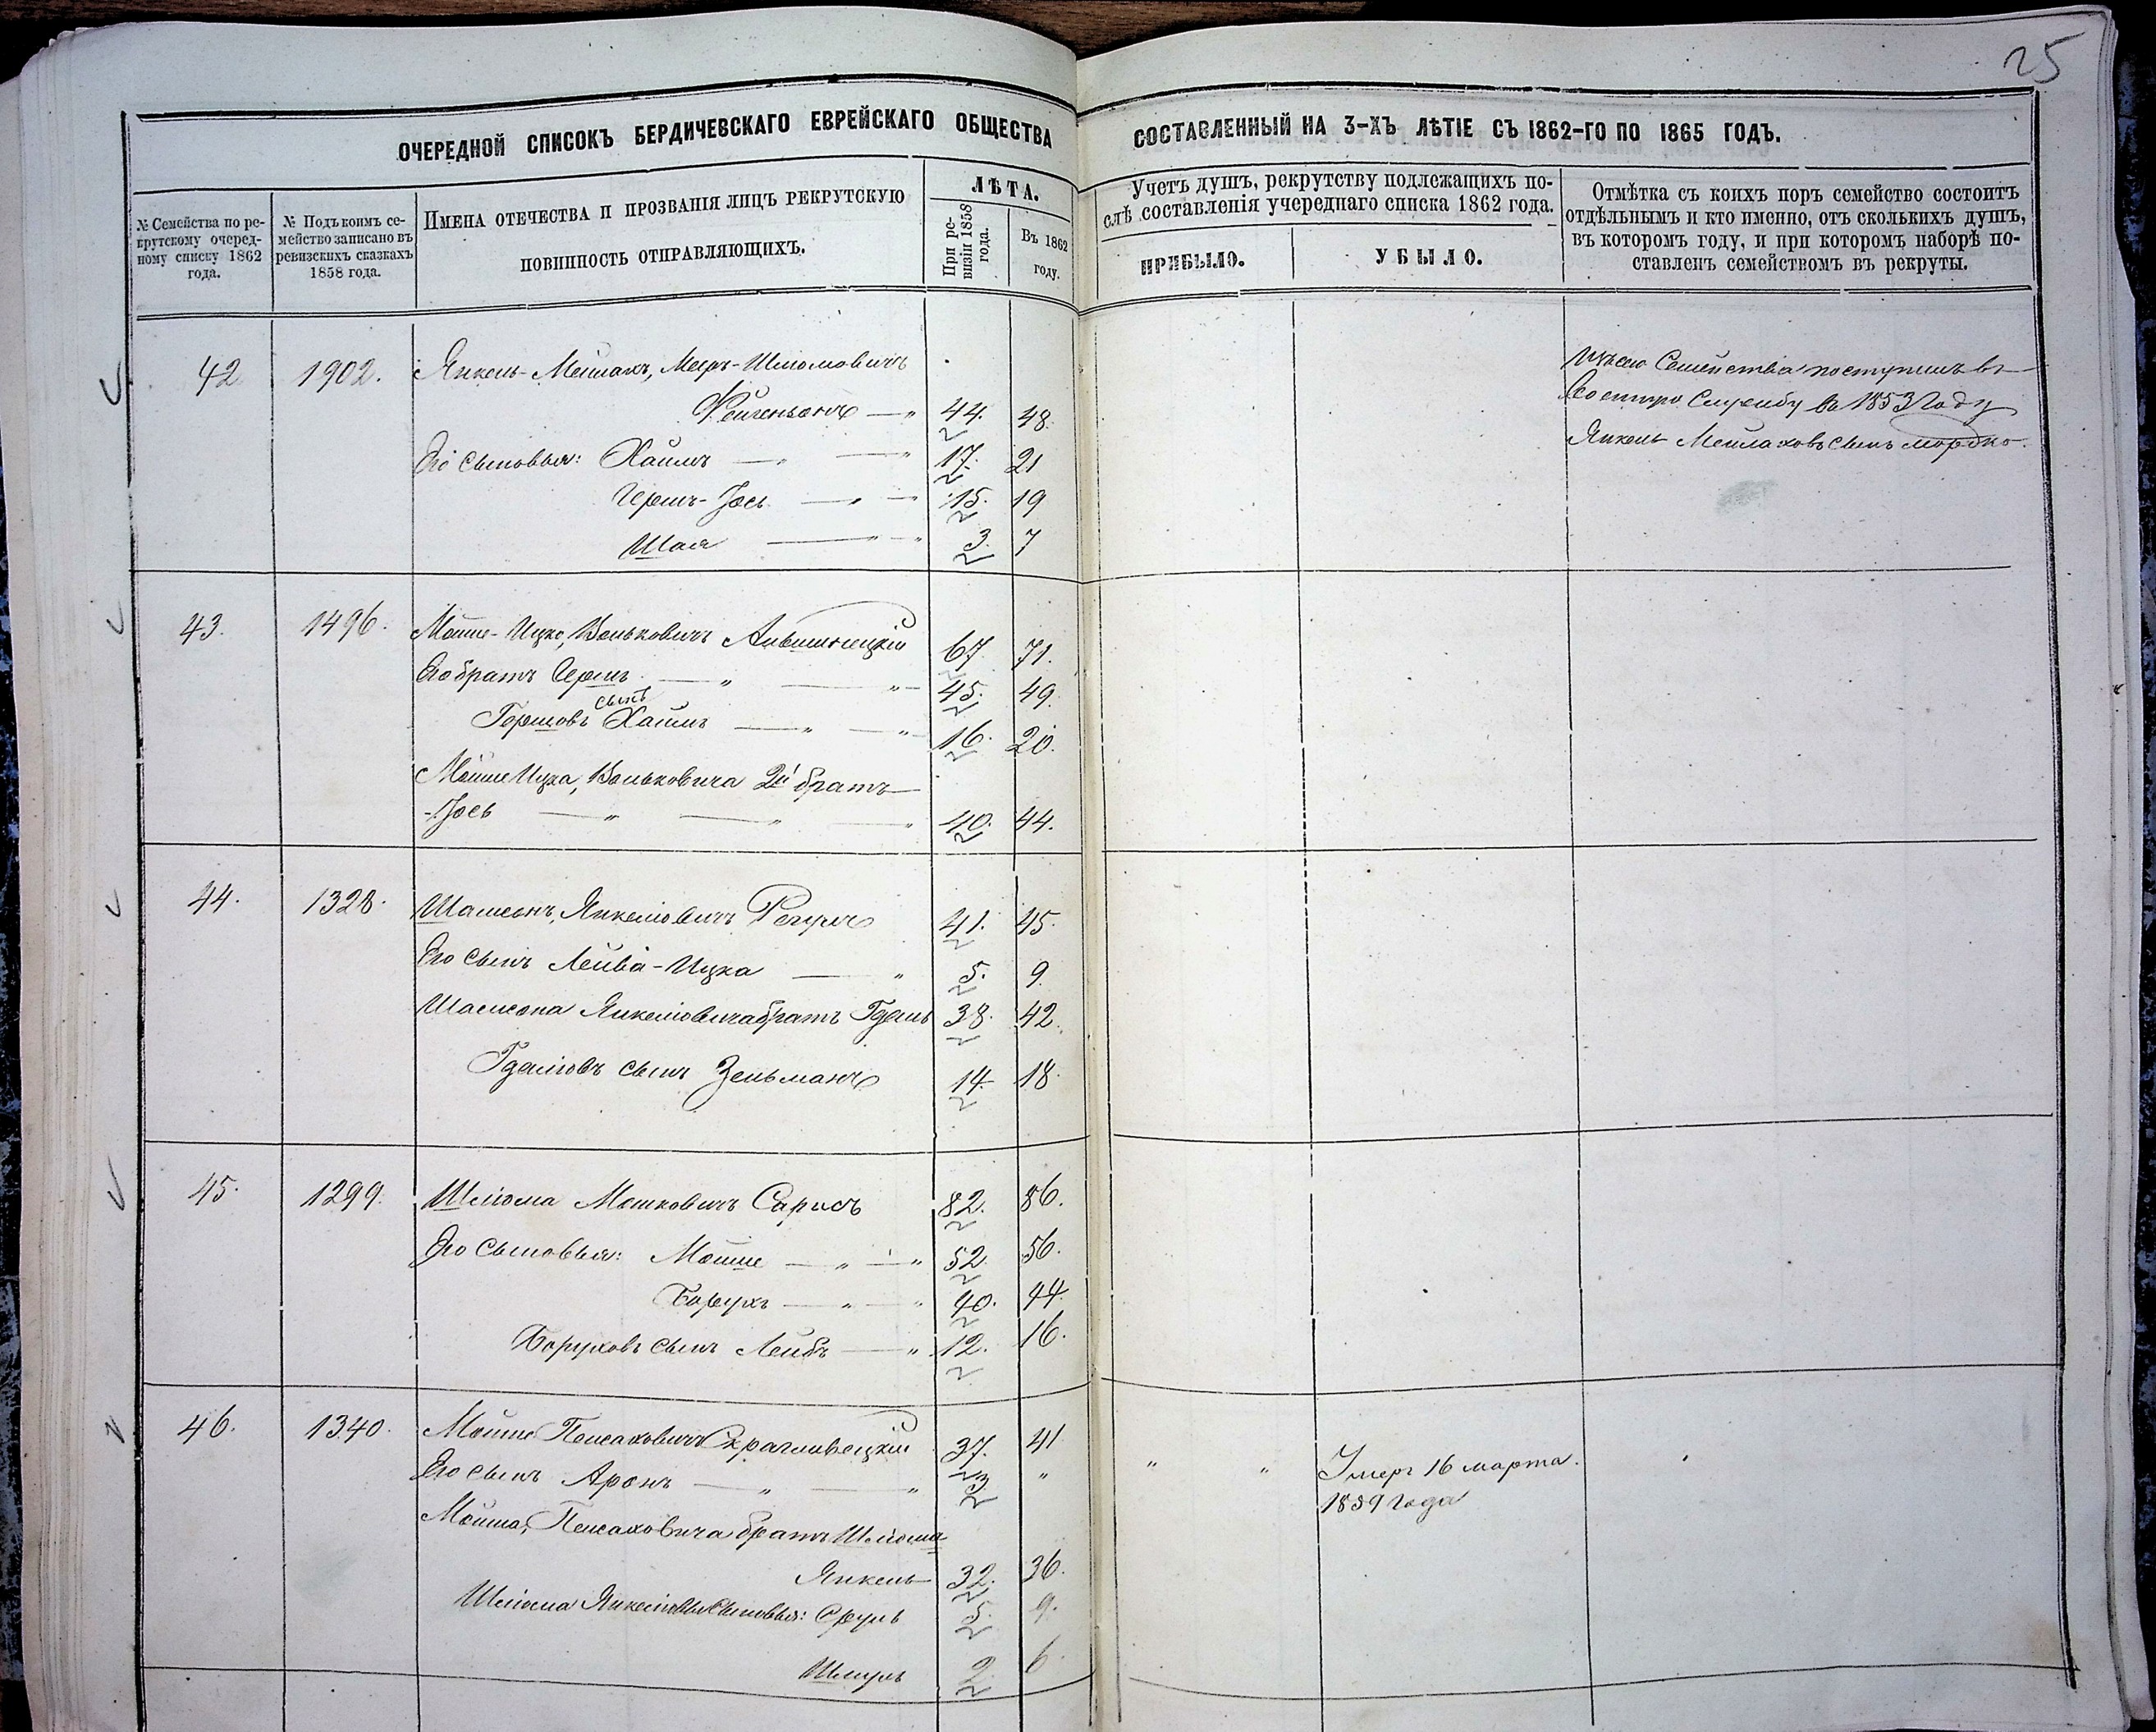 25
ОЧЕРЕДНОЙ СПИСОКЪ БЕРДИЧЕВСКАГО ЕВРЕЙСКАГО ОБЩЕСТВА СОСТАВЛЕННЫЙ НА 3-ХЪ ЛѢТІЕ СЪ 1862-ГО ПО 1865 ГОДЪ.
№ Семейства по ре-
крутскому очеред-
ному списку 1862
года.
№ Подъ коимъ се-
мейство записано въ
ревизскихъ сказкахъ
1858 года.
ИМЕНА ОТЕЧЕСТВА И ПРОЗВАНІЯ ЛИЦЪ РЕКРУТСКУЮ
ПОВИННОСТЬ ОТПРАВЛЯЮЩИХЪ.
ЛѢТА.
При ре-
визіи 1858
года.
Въ 1862
году.
Учетъ душъ, рекрутству подлежащихъ по-
слѣ составленія учереднаго списка 1862 года.
ПРИБЫЛО.
УБЫЛО.
Отмѣтка съ коихъ поръ семейство состоитъ
отдѣльнымъ и кто именно, отъ сколькихъ душъ,
въ котораго году, и при которомъ наборѣ по-
ставленъ семействомъ въ рекруты.
42 1902. Янкель-Мейлахъ, Мееръ-Шліомовичъ
Фейгеньонъ — " 44. 48.
Его сыновья: Хаимъ — " — " 17. 21
Гершъ-Іось — " — 15. 19
Шая — " 3. 7
Семейства поступилъ въ
службу въ 1853 году
Янкель Мейлаховъ сынъ Мордко.
43. 1496. Мойше-Ицко, Вольковичъ 67 71.
Его братъ Гершъ — " — " 45. 49.
сынъ
Гершовъ Хаимъ — " — " 16. 20.
Мойше Ицка, Вольковича 2й братъ
Іось — " — " — " 40. 44.
44. 1328. Шамсонъ, Янкеліовичъ 41. 45.
Его сынъ Лейба-Ицка — " 5. 9.
Шамсона Янкеліовича братъ Гдаль 38. 42.
Гдаліовъ сынъ Зельманъ 14. 18.
45. 1299. Шліома Мошковичъ Сарисъ 82. 86.
Его сыновья: Мойше — " — " 52. 56.
Борухъ — " — " 40. 44.
Боруховъ сынъ Лейбъ — " 12. 16.
46. 1340. Мойше Пейсаховичъ 37. 41
Его сынъ Аронъ — " — " 3 " " " Умеръ 16 марта
1859 года
Мойша, Пейсаховича братъ Шліома
Янкель 32. 36.
Шліома Янкеліовы сыновья: Сруль 5. 9.
Шмуль 2 6